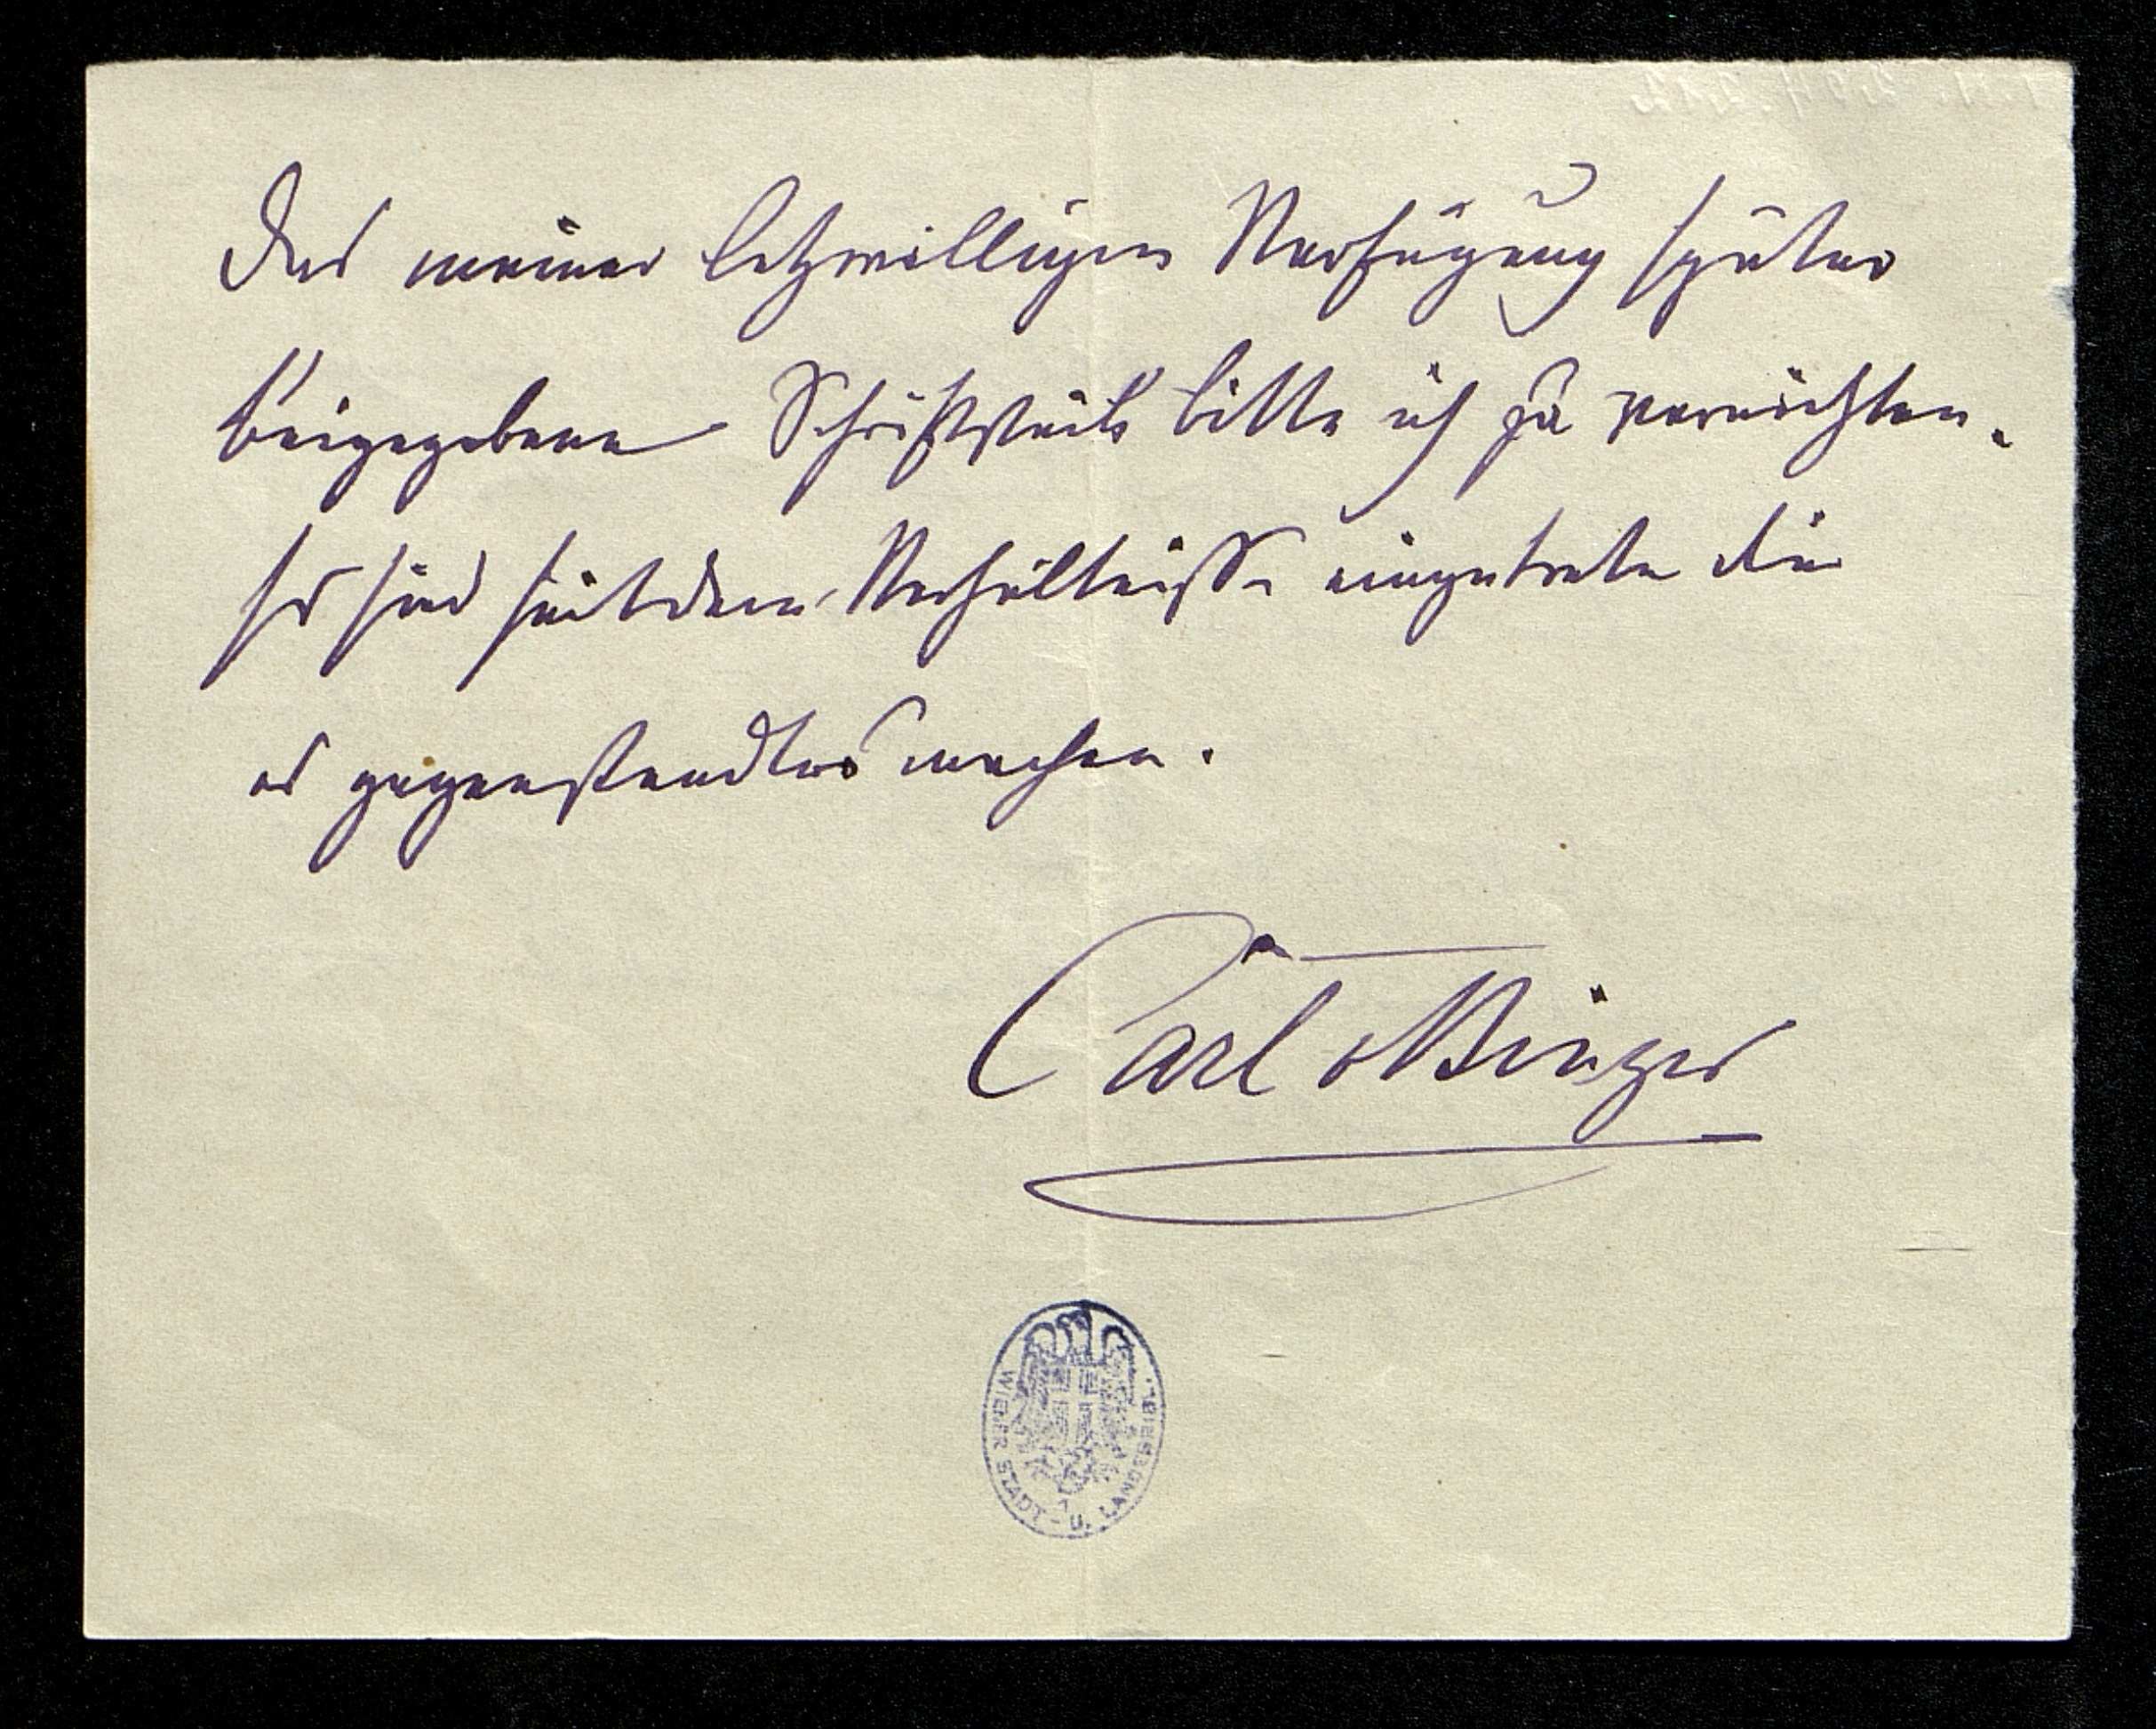 Das meiner letzwilligen Verfügung später
beigegebene Schriftstück bitte ich zu vernichten.
Es sind seitdem Verhältnisse eingetreten die
es gegenstandlos machen.
Carl Menger
WIENER STADT- U. LANDESBIBL.